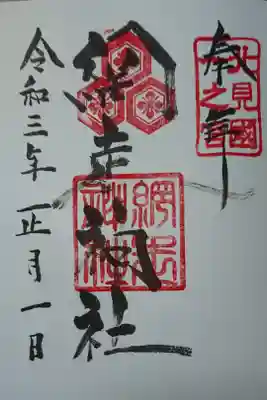 奉拝
北見國
網走神社
網走神社
令和三年正月一日